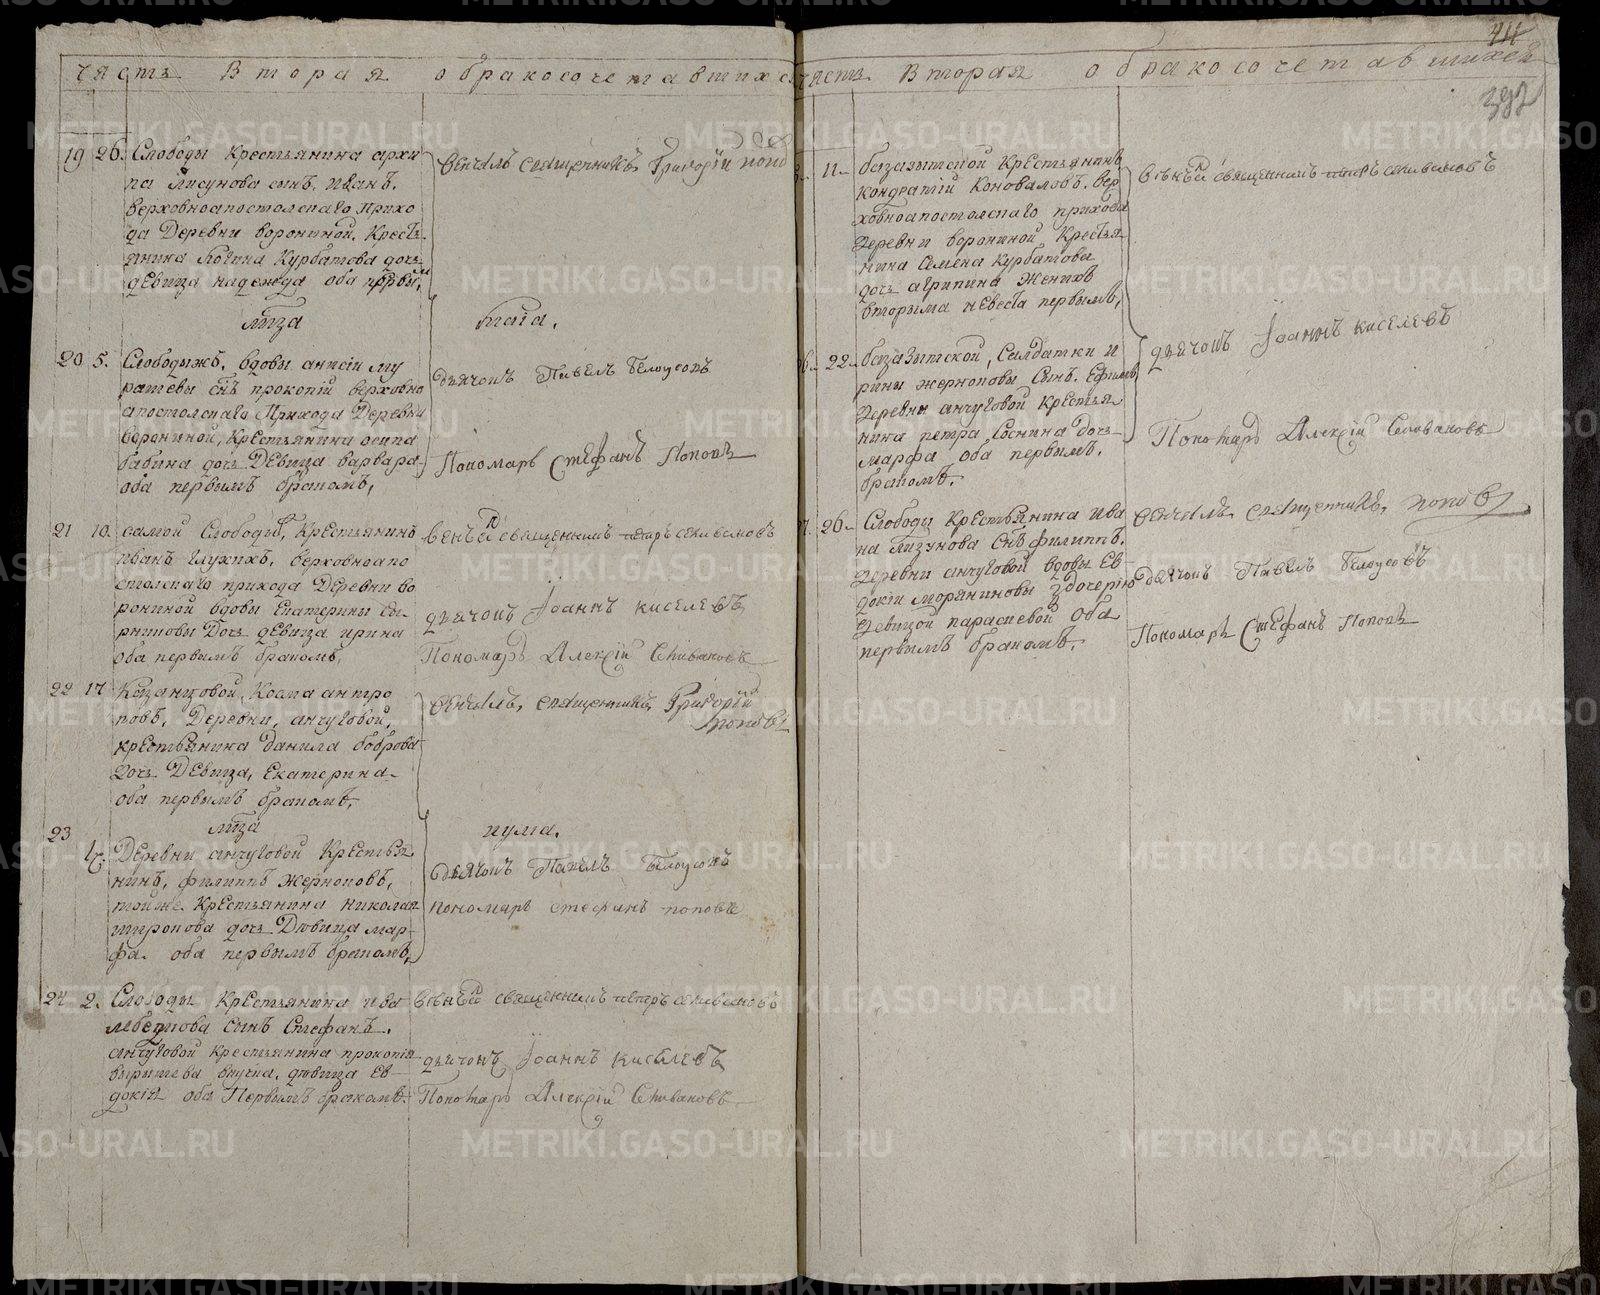 часть Вторая о бракосочетавшихся
19 26. Слободы крестьянина архи
па Лисунова сынъ, иванъ.
верховноапостолскаго прихо
да Деревни ворониной, Кресть
янина Логина Курбатова дочь
дЕвица надежда оба первым
Венчалъ священникъ Григорїи попо
20 5.
ратевы снъ прокопїи верховно
апостолскаго Прихода Деревни
ворониной, крЕстьянина осипа
бабина дочь ДЕвица варвара
оба первымъ бракомъ,
дьячокъ Павелъ Белоусовъ
Пономарь Стефанъ Поповъ
21 10. самой Слободы, Крестьянинъ
иванъ глухихъ, верховноапо
столскаго прихода Деревни во
рониной вдовы Екатерины
дочь дЕвица ирина
оба первымъ бракомъ,
священникъ петръ селивановъ
дьячокъ Iоаннъ киселевъ
Пономарь Алексїй Селивановъ
22 17 Казанцовой, Косма антро
повъ, Деревни, анчуговой,
крЕстьянина Данила боброва
дочь ДЕвица, Екатерина
оба первымъ бракомъ,
венчалъ, священникъ, Григорїй
поповъ
23 Деревни анчуговой КрЕстья
нинъ, филиппъ жернаковъ,
тойже КрЕстьянина николая
дочь Дѣвица мар
фа. оба первымъ бракомъ,
дьячокъ Павелъ Белоусовъ
пономарь стефанъ поповъ
24 2. Слободы КрЕстьянина ива
сынъ Стефанъ,
анчуговой крестьянина прокопїя
внучка, дѣвица Ев
докїя оба Первымъ бракомъ
священникъ петръ селивановъ
дьячокъ Iоаннъ киселевъ
Пономарь Алексїй Селивановъ
часть Вторая о бракосочетавшихся
44
392
11. КрЕстьянинъ
кондратїй Коноваловъ. вер
ховноапостолскаго прихода
Деревни ворониной Крестья
нина Семена Курбатова
дочь агрипина женихъ
вторыма невеста первымъ,
священникъ петръ селивановъ
дьячокъ Iоаннъ киселевъ
22 Салдатки и
рины жернаковы Сынъ. Ефимъ
Деревни анчуговой крестья
нина петра Соснина дочь
марфа оба первымъ.
бракомъ.
Пономарь Алексїй Селивановъ
26 Слободы Крестьянина ива
на лизунова Снъ филиппъ.
Деревни анчуговой вдовы Ев
докїи дочерїю
девицой параскевой Оба
первымъ бракомъ.
венчалъ священникъ, поповъ
дьячокъ Павелъ Белоусовъ
Пономарь Стефанъ Поповъ
METRIKI.GASO-URAL.RU